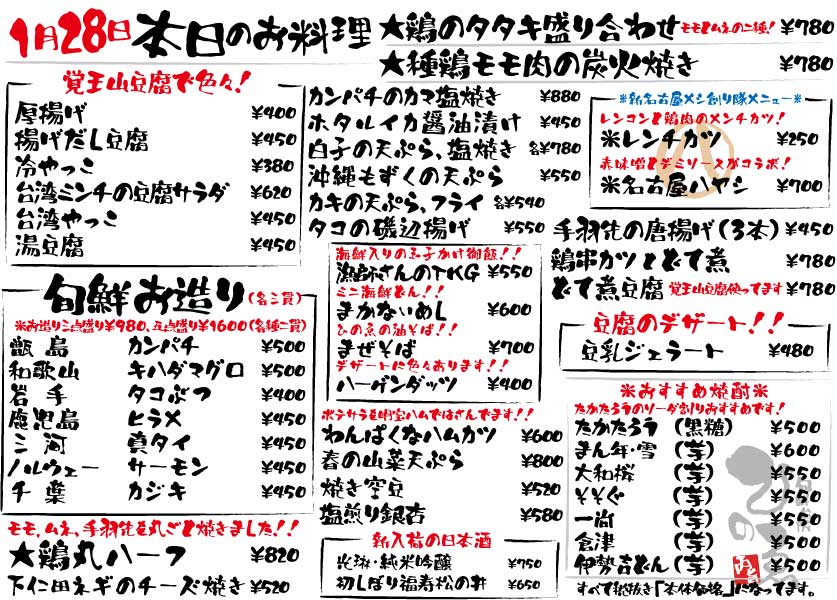 1月28日 本日のお料理
★鶏のタタキ盛り合わせ モモとムネの二種! ¥780
★種鶏モモ肉の炭火焼き ¥780
覚王山豆腐で色々!
厚揚げ ¥400
揚げだし豆腐 ¥450
冷やっこ ¥380
台湾ミンチの豆腐サラダ ¥620
台湾やっこ ¥450
湯豆腐 ¥450
旬鮮お造り(各三貫)
※お造り三点盛り¥980、五点盛り¥1600(各種二貫)
甑島 カンパチ ¥500
和歌山 キハダマグロ ¥500
岩手 タコぶつ ¥400
鹿児島 ヒラメ ¥450
三河 真タイ ¥450
ノルウェー サーモン ¥450
千葉 カジキ ¥450
モモ、ムネ、手羽先を丸ごと焼きました!!
★鶏丸ハーフ ¥820
下仁田ネギのチーズ焼き ¥520
カンパチのカマ塩焼き ¥880
ホタルイカ醤油漬け ¥450
白子の天ぷら、塩焼き 各¥780
沖縄もずくの天ぷら ¥550
カキの天ぷら、フライ 各¥540
タコの磯辺揚げ ¥550
海鮮入りの玉子かけ御飯!!
漁師さんのTKG ¥550
ミニ海鮮どん!!
まかないめし ¥600
ひの魚の油そば!!
まぜそば ¥700
デザートに色々あります!!
ハーゲンダッツ ¥400
ポテサラを明宝ハムではさんでます!!
わんぱくなハムカツ ¥600
春の山菜天ぷら ¥800
焼き空豆 ¥520
塩煎り銀杏 ¥580
新入荷の日本酒
純米吟醸 ¥750
初しぼり福寿松の井 ¥650
※新名古屋メシ創り隊メニュー※
レンコンと鶏肉のメンチカツ!
米レンチカツ ¥250
赤味噌とデミソースがコラボ!
米名古屋ハヤシ ¥700
手羽先の唐揚げ(3本) ¥450
鶏串カツとどて煮 ¥780
どて煮豆腐 覚王山豆腐使ってます ¥780
豆腐のデザート!!
豆乳ジェラート ¥480
※おすすめ焼酎※
たかたろうのソーダ割りおすすめです!
たかたろう (黒糖) ¥500
まん年・雪 (芋) ¥600
大和桜 (芋) ¥550
そそぐ (芋) ¥550
一尚 (芋) ¥550
倉津 (芋) ¥500
伊勢吉どん (芋) ¥550
すべて税抜き「本体価格」になってます。